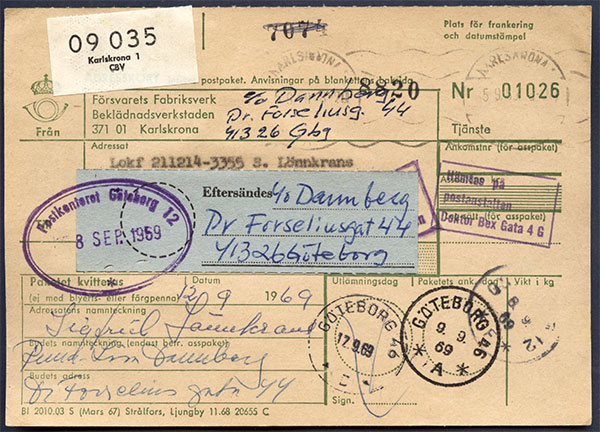 7074
Plats för frankering
och datumstämpel
09 035
Karlskrona 1
CBV
KARLSKRONA 1
postpaket. Anvisningar på blankettens baksida
8820
Nr 01026
Från
Försvarets Fabriksverk
Beklädnadsverkstaden
371 01 Karlskrona
c/o Dannberg
Dr. Forseliusg. 44
413 26 Gbg
Tjänste
Adressat
Ankomstnr (för asspaket)
Lokf 211214-3355 S. Lönnkrans
Hämtas på
postanstalten
Doktor Bex Gata 4 G
Eftersändes
c/o Dannberg
Dr Forseliusgat 44
413 26 Göteborg
Postkontoret Göteborg 12
8 SEP. 1969
Paketet kvitteras
Datum
Utlämningsdag
Paketets ank.dag
Vikt i kg
(ej med blyerts- eller färgpenna)
12/9 1969
Adressatens namnteckning
Sigfrid Lönnkrans
GÖTEBORG 46
17.9.69
GÖTEBORG 46
9. 9.
69
* A *
Budets namnteckning (endast befr. asspaket)
Dannberg
Budets adress
Dr Forselius gata 44
Sign.
BI 2010.03 S (Mars 67) Strålfors, Ljungby 11.68 20655 C